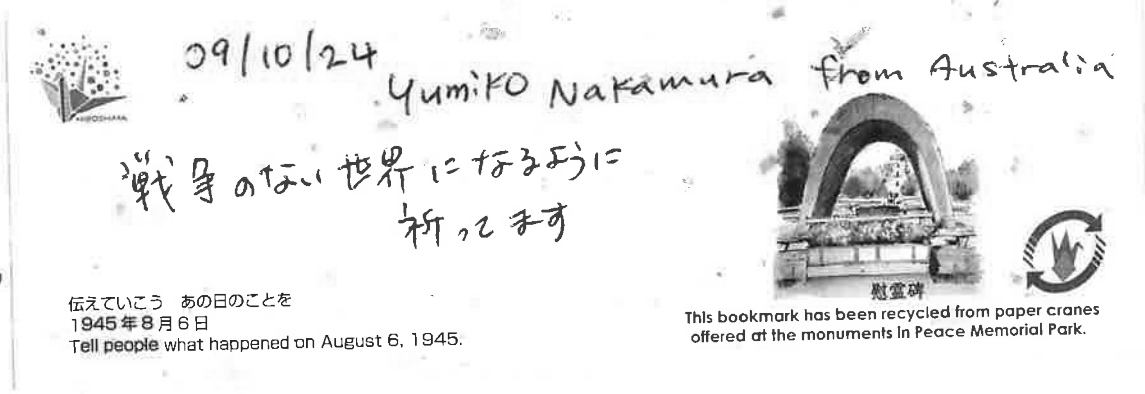 09/10/24
Yumiko Nakamura from Australia
HIROSHIMA
戦争のない世界になるように
祈ってます
慰霊碑
伝えていこう あの日のことを
1945年8月6日
Tell people what happened on August 6, 1945.
This bookmark has been recycled from paper cranes
offered at the monuments in Peace Memorial Park.